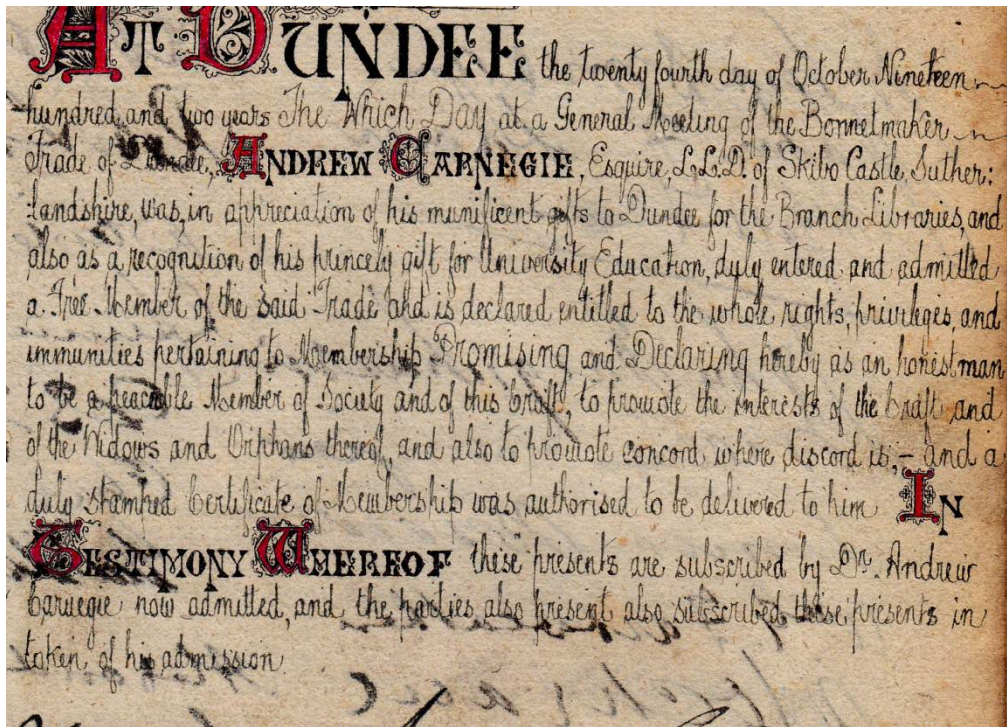 AT DUNDEE the twenty fourth day of October Nineteen
hundred and two years The Which Day at a General Meeting of the Bonnetmaker
Trade of Dundee, ANDREW CARNEGIE, Esquire, L.L.D. of Skibo Castle, Suther:
:landshire, was, in appreciation of his munificent gifts to Dundee for the Branch Libraries, and
also as a recognition of his princely gift for University Education, duly entered and admitted
a Free Member of the said Trade and is declared entitled to the whole rights, privileges, and
immunities pertaining to Membership Promising and Declaring hereby as an honest man
to be a peacable Member of Society and of this Craft, to promote the interests of the Craft and
of the Widows and Orphans thereof, and also to promote concord where discord is, – and a
duly stamped Certificate of Membership was authorised to be delivered to him IN
TESTIMONY WHEREOF these presents are subscribed by Dr. Andrew
Carnegie now admitted, and the parties also present also subscribed these presents in
token of his admission